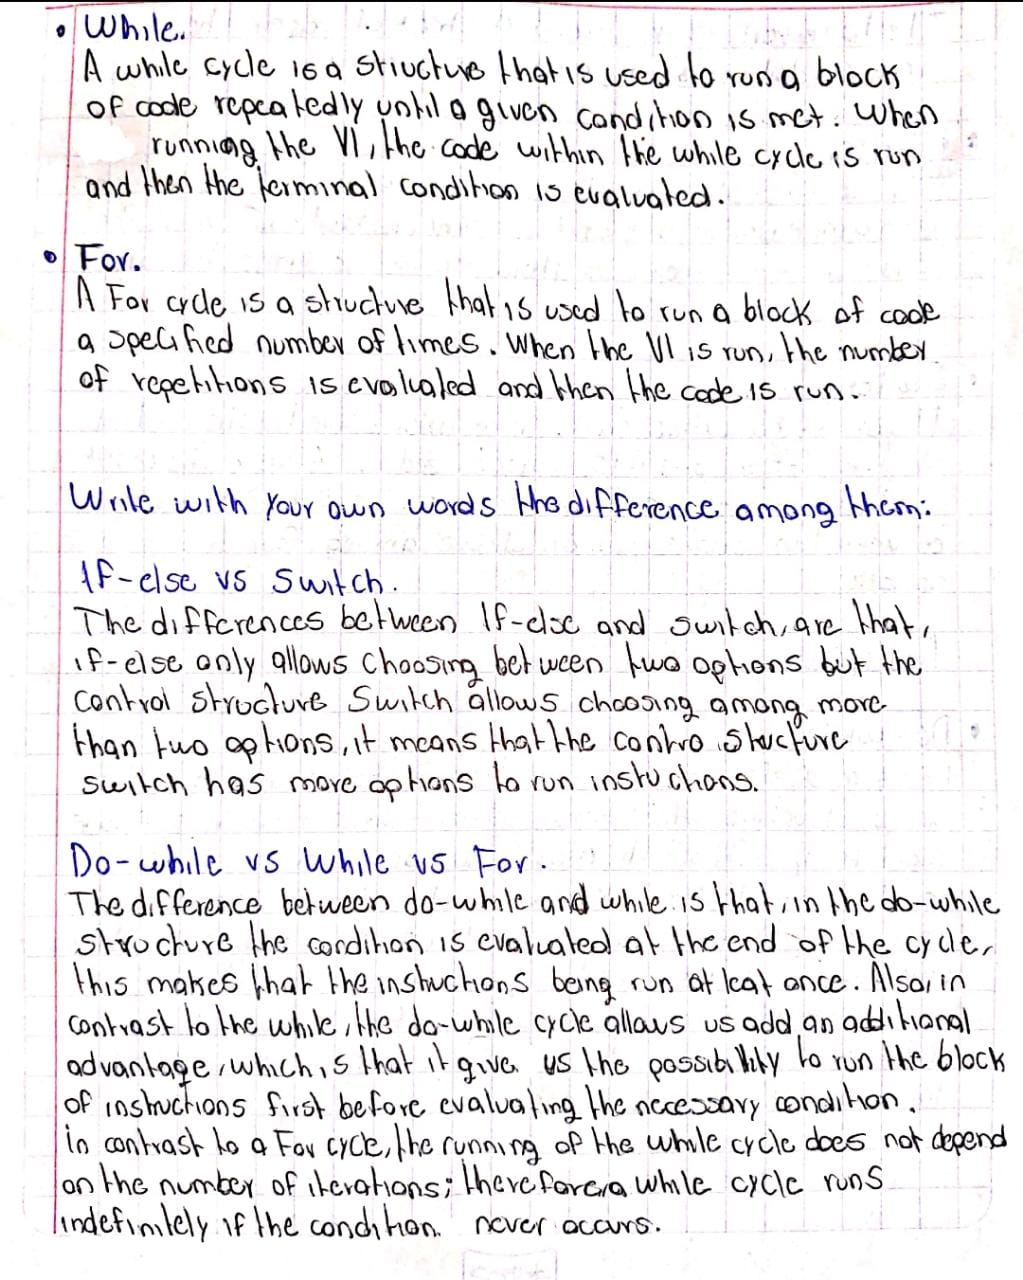 • While.
A while cycle is a structure that is used to run a block
of code repeatedly until a given condition is met. When
running the VI, the code within the while cycle is run
and then the terminal condition is evaluated.
• For.
A For cycle is a structure that is used to run a block of code
a specified number of times. When the VI is run, the number
of repetitions is evaluated and then the code is run.
Write with your own words the difference among them:
If-else vs Switch.
The differences between If-else and switch, are that,
if-else only allows choosing between two options but the
control structure Switch allows choosing among more
than two options, it means that the contro structure
switch has more options to run instuctions.
Do-while vs While vs For.
The difference between do-while and while is that, in the do-while
structure the condition is evaluated at the end of the cycle,
this makes that the instuctions being run at leat once. Also, in
contrast to the while, the do-while cycle allows us add an additional
advantage, which is that it give us the possibility to run the block
of instructions first before evaluating the necessary condition.
in contrast to a For cycle, the running of the while cycle does not depend
on the number of iterations; therefore, a while cycle runs
indefinitely if the condition never occurs.